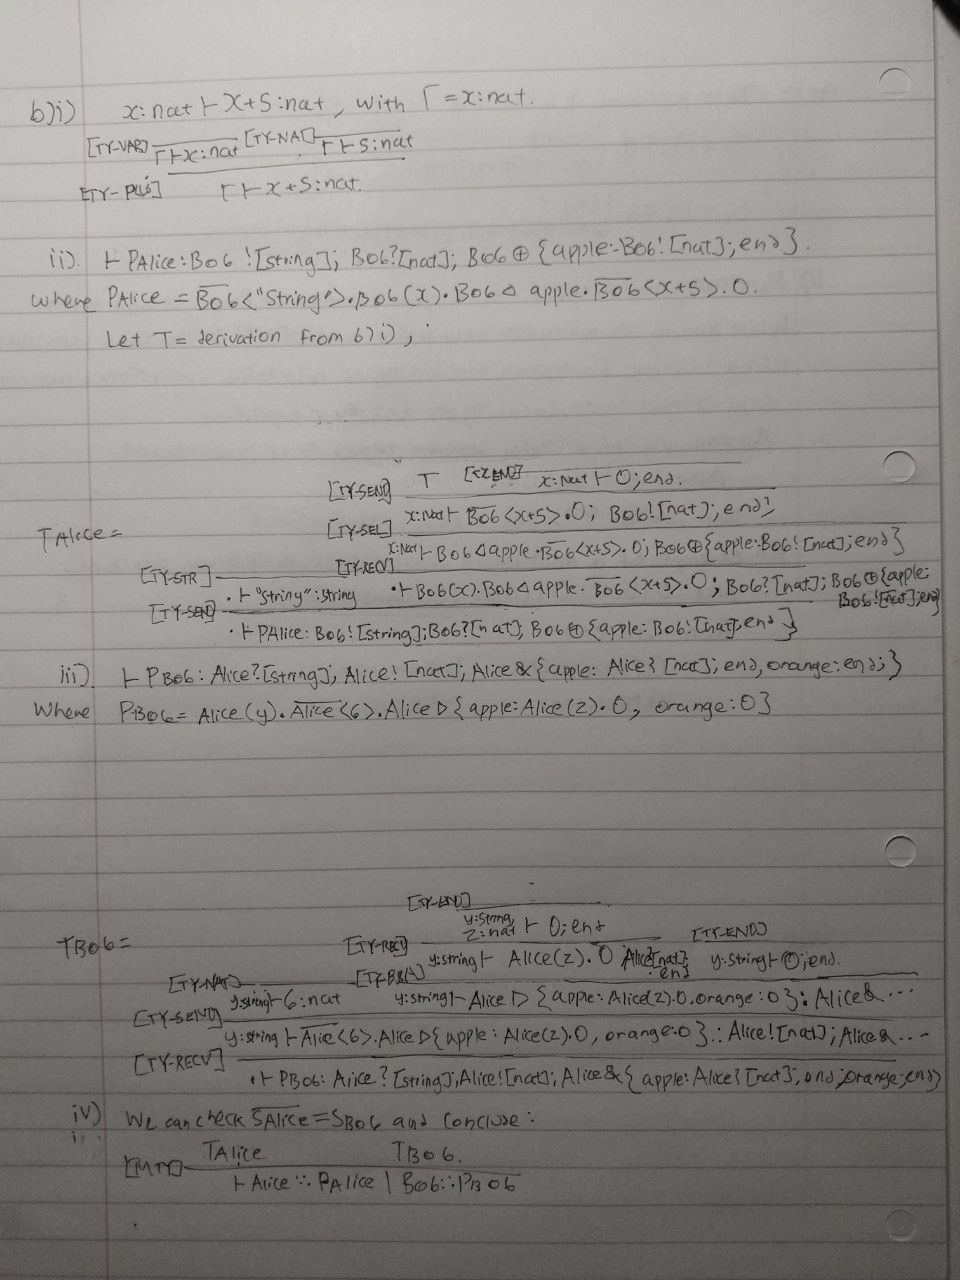 b)i) x:nat ⊢ x+5:nat, with Γ=x:nat.
[TY-VAR] Γ⊢x:nat [TY-NAT] Γ⊢5:nat
[TY-PLUS] Γ⊢x+5:nat.
ii). ⊢ PAlice: Bob![string]; Bob?[nat]; Bob⊕{apple:Bob![nat];end}.
where PAlice = B̅o̅b̅<"String">.Bob(x).Bob◁apple.B̅o̅b̅<x+5>.0.
Let T= derivation from b)i),
[TY-SEND] T [TY-END] x:Nat ⊢ 0;end.
[TY-SEL] x:Nat ⊢ B̅o̅b̅<x+5>.0; Bob![nat];end}
TAlice =
x:Nat ⊢ Bob◁apple.B̅o̅b̅<x+5>.0; Bob⊕{apple:Bob![nat];end}
[TY-STR] [TY-RECV]
·⊢"String":string ·⊢Bob(x).Bob◁apple.B̅o̅b̅<x+5>.0; Bob?[nat];Bob⊕{apple:
Bob![nat];end}
[TY-SEND] ·⊢PAlice: Bob![string];Bob?[nat]; Bob⊕{apple: Bob![nat];end}
iii) ⊢PBob: Alice?[string]; Alice![nat]; Alice&{apple: Alice?[nat];end,orange:end;}
Where PBob= Alice(y).A̅l̅i̅c̅e̅<6>.Alice▷{apple:Alice(z).0, orange:0}
[TY-END]
TBob=
y:String, z:nat ⊢ 0;end
[TY-RECV] [TY-END]
y:string⊢ Alice(z).0 Alice?[nat];end y:String⊢0;end.
[TY-NAT] [TY-BRA]
y:string⊢6:nat y:string⊢Alice▷{apple:Alice(z).0,orange:0}: Alice&...
[TY-SEND] y:string⊢A̅l̅i̅c̅e̅<6>.Alice▷{apple:Alice(z).0, orange:0}.: Alice![nat];Alice&...
[TY-RECV] ·⊢PBob: Alice?[string];Alice![nat]; Alice&{apple:Alice?[nat];end,orange:end}
iv) We can check S̅A̅l̅i̅c̅e̅=SBob and conclude:
TAlice TBob.
[MTY] ⊢Alice::PAlice | Bob::PBob